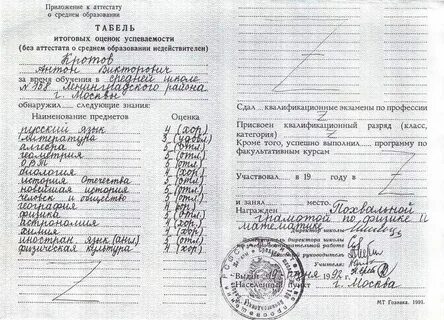 Приложение к аттестату
о среднем образовании
ТАБЕЛЬ
итоговых оценок успеваемости
(без аттестата о среднем образовании недействителен)
Кротов
Антон Викторович
за время обучения в средней школе
Ленинградского района
г. Москвы
обнаружил следующие знания:
Наименование предметов Оценка
русский язык 4 (хор)
литература 3 (удовл)
алгебра 5 (отл)
геометрия 5 (отл)
биология (хор)
история Отечества 5 (отл)
новейшая история 5 (отл)
человек и общество 5 (отл)
география
физика 5 (отл)
астрономия (хор)
химия (хор)
иностран. язык 5 (отл)
физическая культура 4 (хор)
Сдал квалификационные экзамены по профессии
Z
Присвоен квалификационный разряд (класс,
категория) Z
Кроме того, успешно выполнил программу по
факультативным курсам
Z
Участвовал в 19 году в
Z
и занял место.
Награжден Похвальной
грамотой по физике и
математике
директора школы
руководитель
Учителя
Выдан июня 1992 г.
Населенный пункт г. Москва
МТ Гознака. 1991.